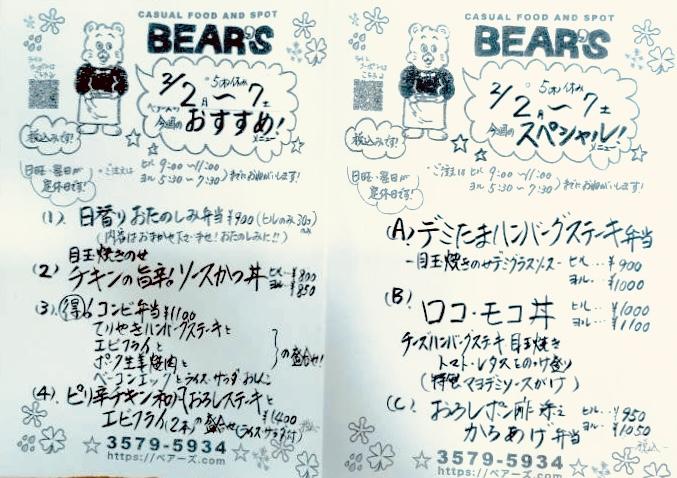 CASUAL FOOD AND SPOT
BEAR'S
2/2月〜7土
5木休み
ベアーズの
今週の
おすすめ!
メニュー
税込みです!
日曜・祭日が
定休日です!
・ご注文は
ヒル 9:00〜11:00
ヨル 5:30〜7:30
までにお願いします!
(1). 日替りおたのしみ弁当 ¥900 (ヒルのみ30コのみ)
(内容はおまかせ下さいませ! おたのしみに!!)
目玉焼きのせ
(2) チキンの旨辛ソースかつ丼 ヒル…¥800
ヨル…¥850
(3). 得! コンビ弁当 ¥1100
てりやきハンバーグステーキと
エビフライと
ポーク生姜焼肉と
の盛合せ!
ベーコンエッグとライス・サラダ・おしんこ
(4). ピリ辛チキン和風おろしステーキと
エビフライ(2本)の盛合せ(ライス・サラダ付) ¥1400
税込
3579-5934
https://ベアーズ.com
CASUAL FOOD AND SPOT
BEAR'S
2/2月〜7土
5木休み
今週の
スペシャル!
メニュー
税込みです!
日曜・祭日が
定休日です!
・ご注文は
ヒル 9:00〜11:00
ヨル 5:30〜7:30
までにお願いします!
(A). デミたまハンバーグステーキ弁当
-目玉焼きのせデミグラスソース- ヒル…¥900
ヨル…¥1000
(B)
ロコ・モコ丼 ヒル…¥1000
ヨル…¥1100
チーズハンバーグステーキ 目玉焼き
トマト・レタスとのっけ盛り
(特製マヨデミソースがけ)
(C). おろしポン酢添え ヒル…¥950
からあげ弁当 ヨル…¥1050
-税込-
3579-5934
https://ベアーズ.com